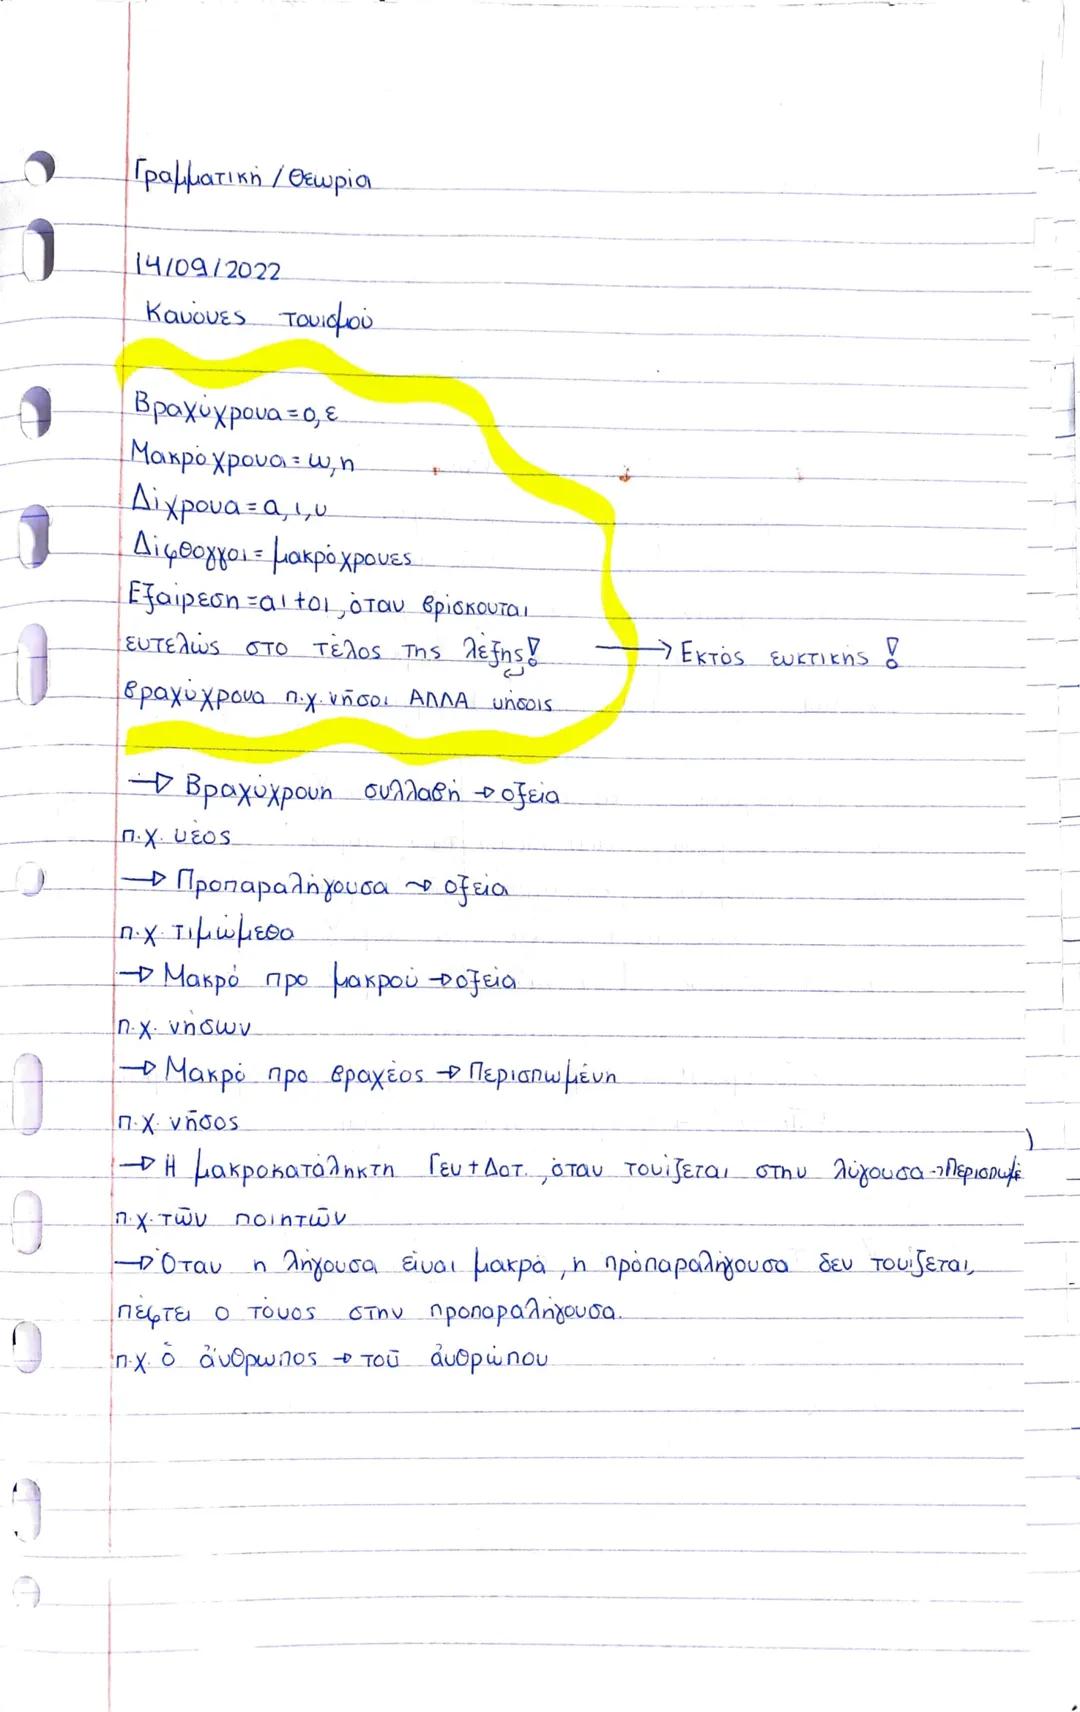 Γραμματική / Θεωρία
14/09/2022
Κανόνες τονισμού
Βραχύχρονα = ο, ε
Μακρόχρονα = ω, η
Δίχρονα = α, ι, υ
Δίφθογγοι = μακρόχρονες
Εξαίρεση = αι + οι, όταν βρίσκονται
εντελώς στο τέλος της λέξης! → Εκτός ευκτικής!
βραχύχρονα π.χ. νῆσοι ΑΛΛΑ νήσοις
→ Βραχύχρονη συλλαβή → οξεία
π.χ. νέος
→ Προπαραλήγουσα → οξεία
π.χ. τιμώμεθα
→ Μακρό προ μακρού → οξεία
π.χ. νήσων
→ Μακρό προ βραχέος → Περισπωμένη
π.χ. νῆσος
→ Η μακροκατάληκτη Γεν + Δοτ., όταν τονίζεται στην λύγουσα → Περισπωμέ
π.χ. τῶν ποιητῶν
→ Όταν η λήγουσα είναι μακρά, η προπαραλήγουσα δεν τονίζεται,
πέφτει ο τόνος στην προπαραλήγουσα.
π.χ. ὁ ἄνθρωπος → τοῦ ἀνθρώπου